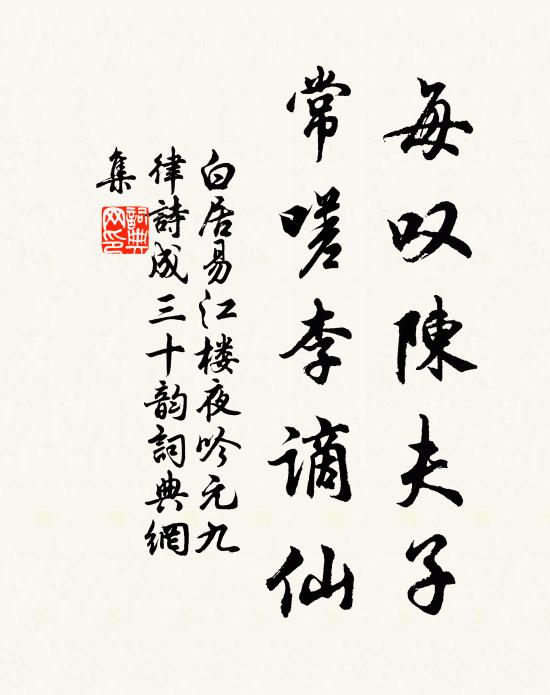 每叹陳夫子
常嗟李謫仙
白居易江楼夜吟元九
律詩成三十韵詞典網
集
詞典
网印